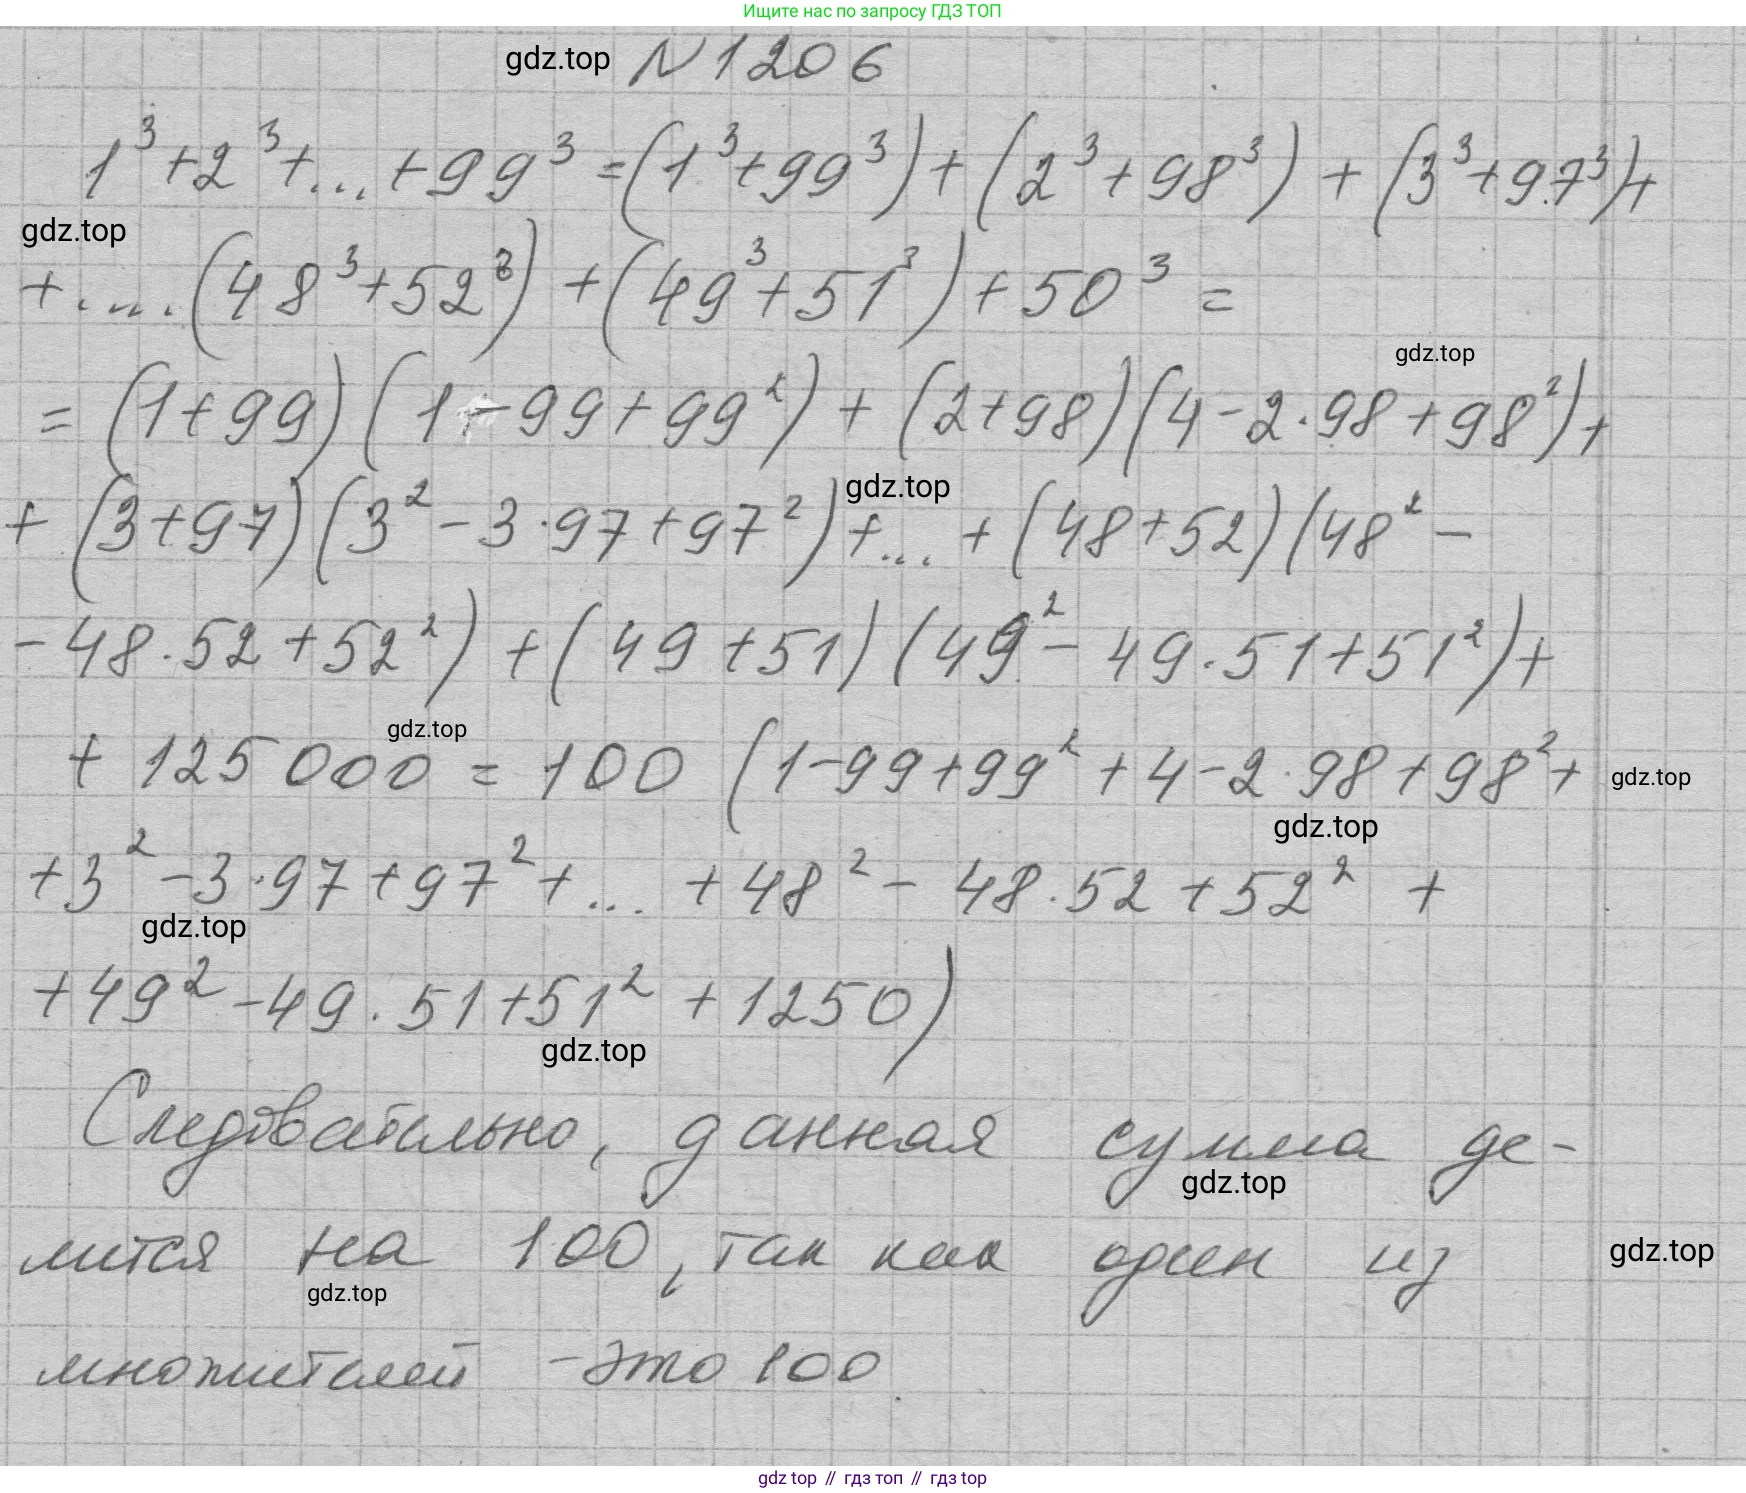 Ищите нас по запросу ГДЗ ТОП
gdz.top N 1206
1³ + 2³ + ... + 99³ = (1³ + 99³) + (2³ + 98³) + (3³ + 97³) +
gdz.top
+ .... (48³ + 52³) + (49³ + 51³) + 50³ =
gdz.top
= (1 + 99) (1 - 99 + 99²) + (2 + 98) (4 - 2 · 98 + 98²) +
gdz.top
+ (3 + 97) (3² - 3 · 97 + 97²) + ... + (48 + 52) (48² -
- 48 · 52 + 52²) + (49 + 51) (49² - 49 · 51 + 51²) +
gdz.top
+ 125 000 = 100 (1 - 99 + 99² + 4 - 2 · 98 + 98² + gdz.top
gdz.top
+ 3² - 3 · 97 + 97² + ... + 48² - 48 · 52 + 52² +
gdz.top
+ 49² - 49 · 51 + 51² + 1250)
gdz.top
Следовательно, данная сумма де-
gdz.top
лится на 100, так как один из gdz.top
gdz.top
множителей - это 100.
gdz top // гдз топ // гдз top